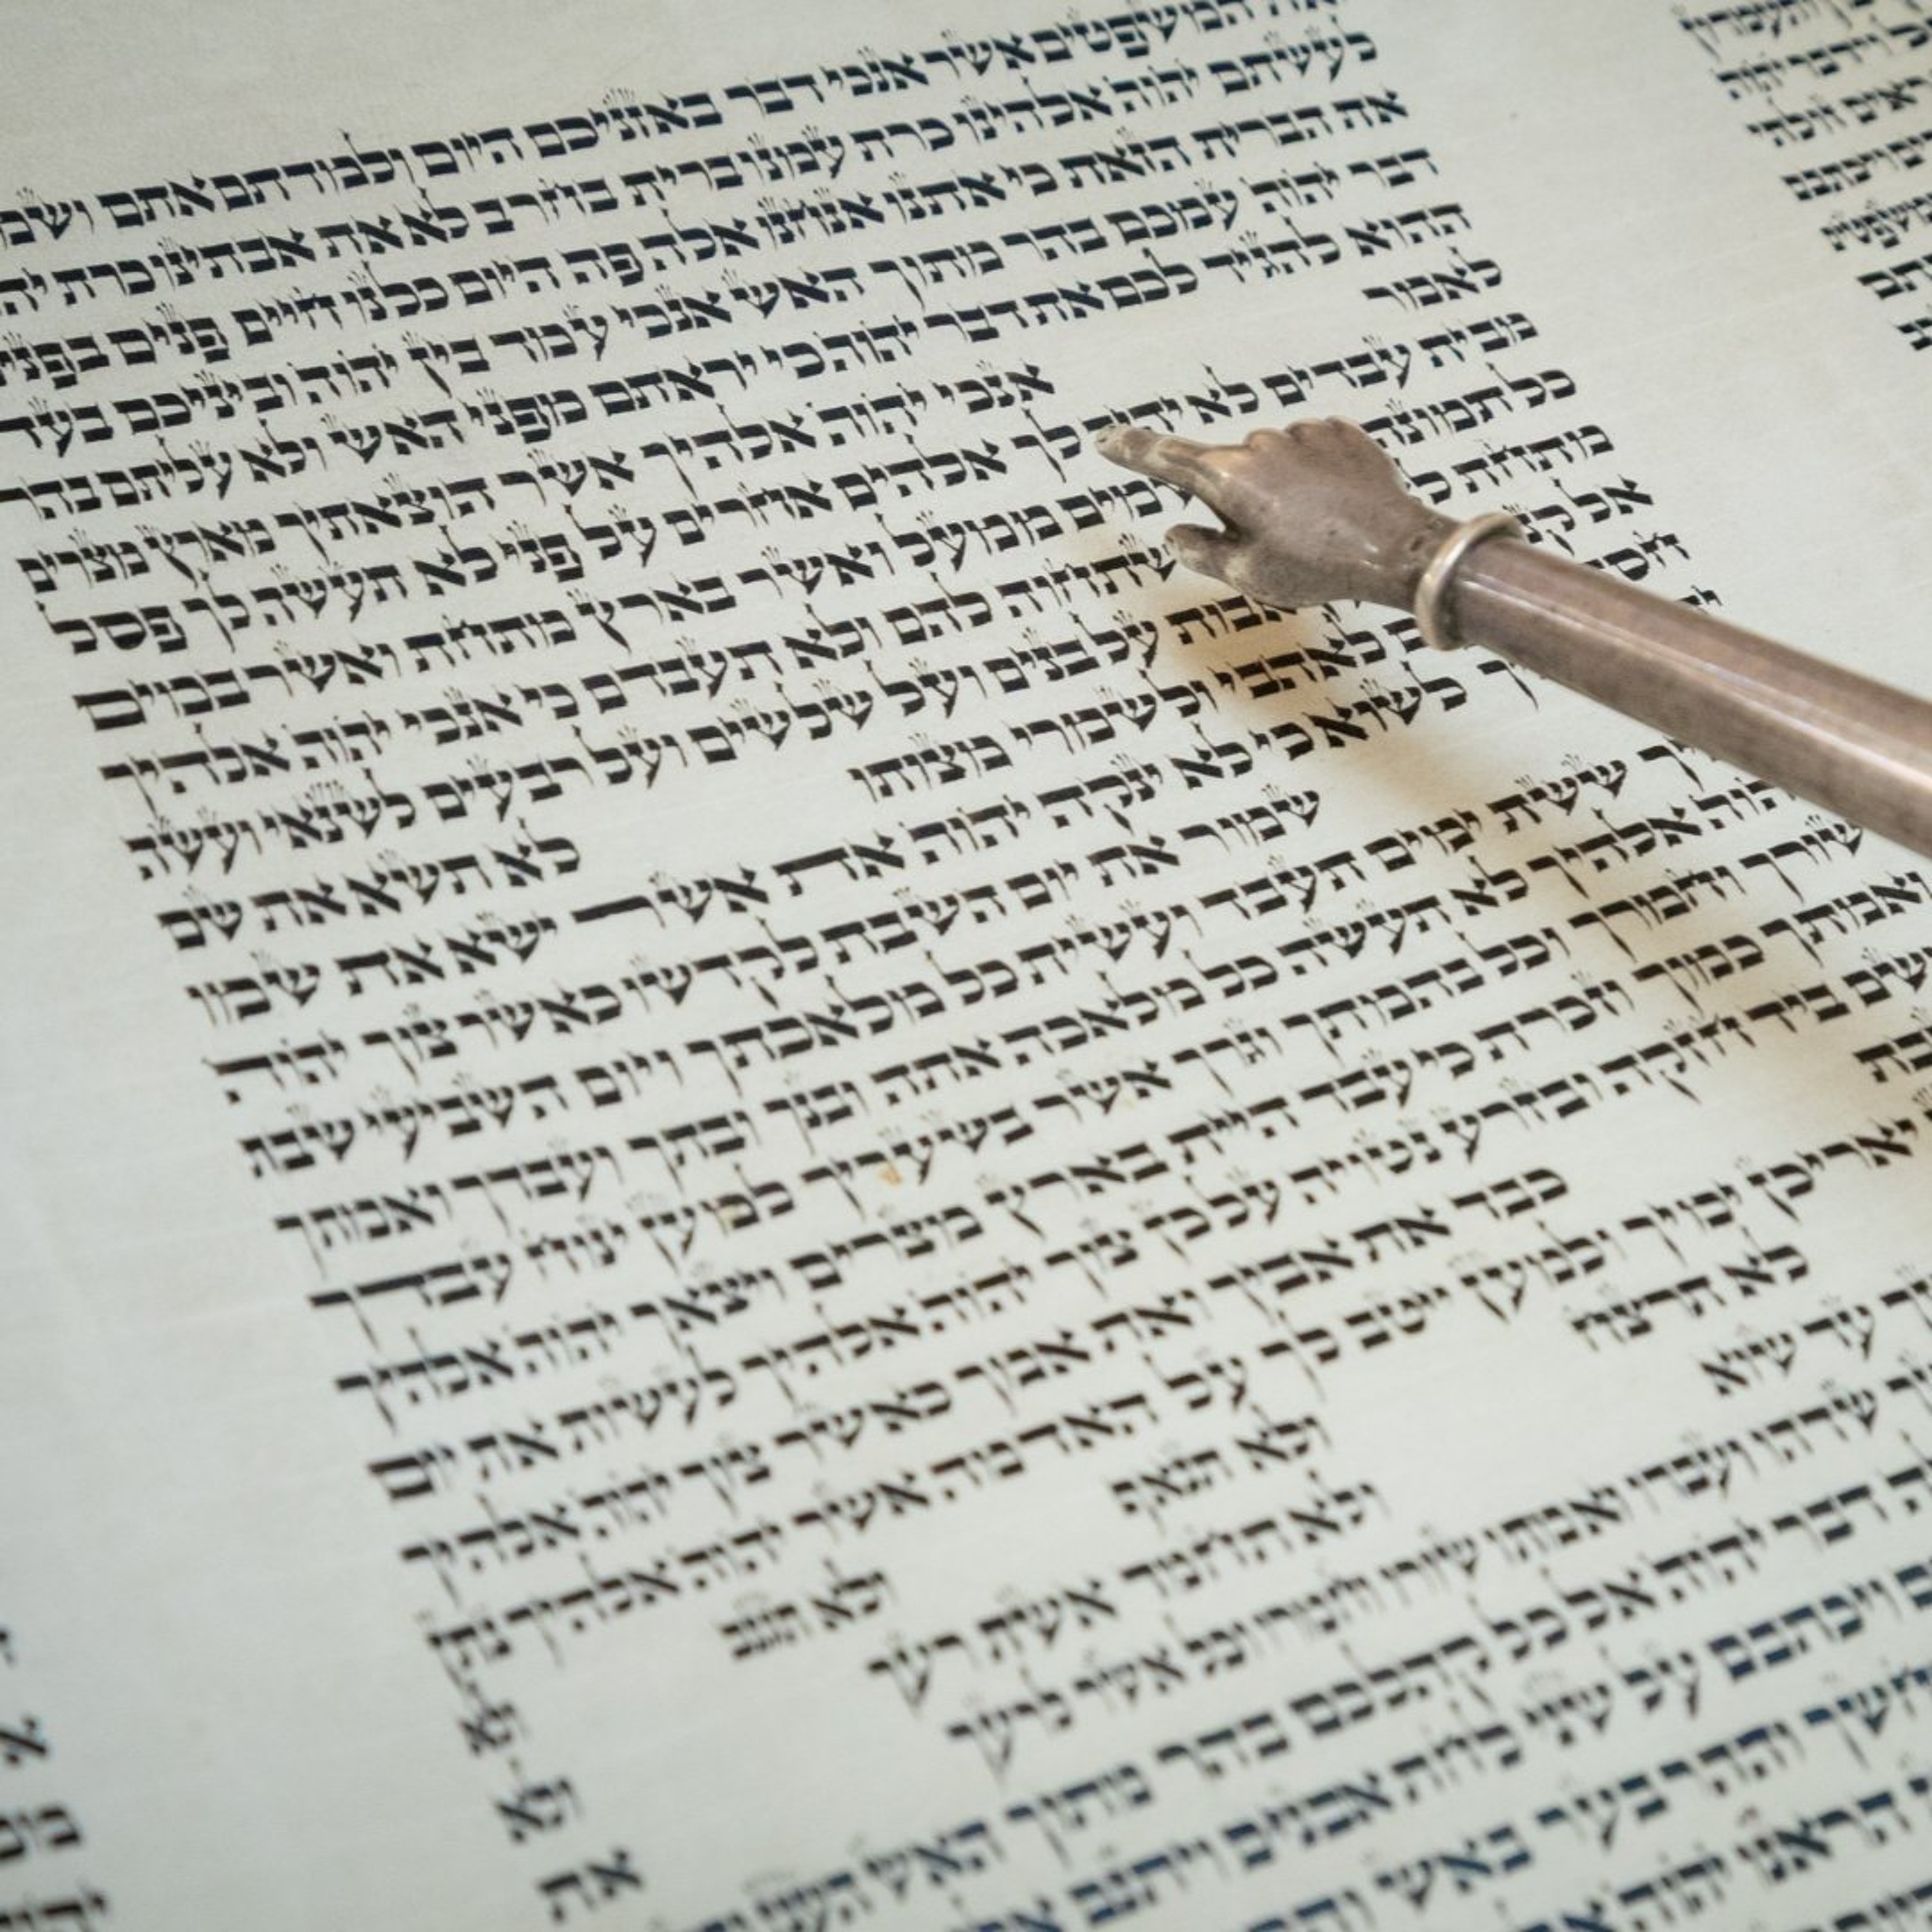 המשפטים אשר אנכי דבר באזניכם היום ולמדתם אתם
לעשתם יהוה אלהינו כרת עמנו ברית בחרב לא את אבתינו כרת
את הברית הזאת כי אתנו אנחנו אלה פה היום כלנו חיים פנים בפני
דבר יהוה עמכם בהר מתוך האש אנכי עמד בין יהוה וביניכם בעת
ההוא להגיד לכם את דבר יהוה כי יראתם מפני האש ולא עליתם בהר
לאמר אנכי יהוה אלהיך אשר הוצאתיך מארץ מצרים
מבית עבדים לא יהיה לך אלהים אחרים על פני לא תעשה לך פסל
כל תמונה ממעל ואשר בארץ מתחת ואשר במים
מתחת להם ולא תעבדם כי אנכי יהוה אלהיך
אל אבות על בנים ועל שלשים ועל רבעים לשנאי ועשה
חסד לאהבי ולשמרי מצותו לא תשא את שם
לשוא כי לא ינקה יהוה את אשר ישא את שמו
שמור את יום השבת לקדשו כאשר צוך יהוה
ששת ימים תעבד ועשית כל מלאכתך ויום השביעי שבת
אלהיך לא תעשה כל מלאכה אתה ובנך ובתך ועבדך ואמתך
שורך וחמרך וכל בהמתך וגרך אשר בשעריך למען ינוח עבדך
ואמתך כמוך וזכרת כי עבד היית בארץ מצרים ויצאך יהוה אלהיך
ביד חזקה ובזרע נטויה על כן צוך יהוה אלהיך לעשות את יום
כבד את אביך ואת אמך כאשר צוך יהוה אלהיך
יאריכן ימיך ולמען ייטב לך על האדמה אשר יהוה אלהיך נתן
לא תרצח ולא תנאף ולא תגנב ולא
עד שוא ולא תחמד אשת רעך ולא
שדהו ועבדו ואמתו שורו וחמרו וכל אשר לרעך את
דבר יהוה אל כל קהלכם בהר מתוך האש
ויכתבם על שני לחת אבנים ויתנם
וההר בער באש
הראנו יהוה